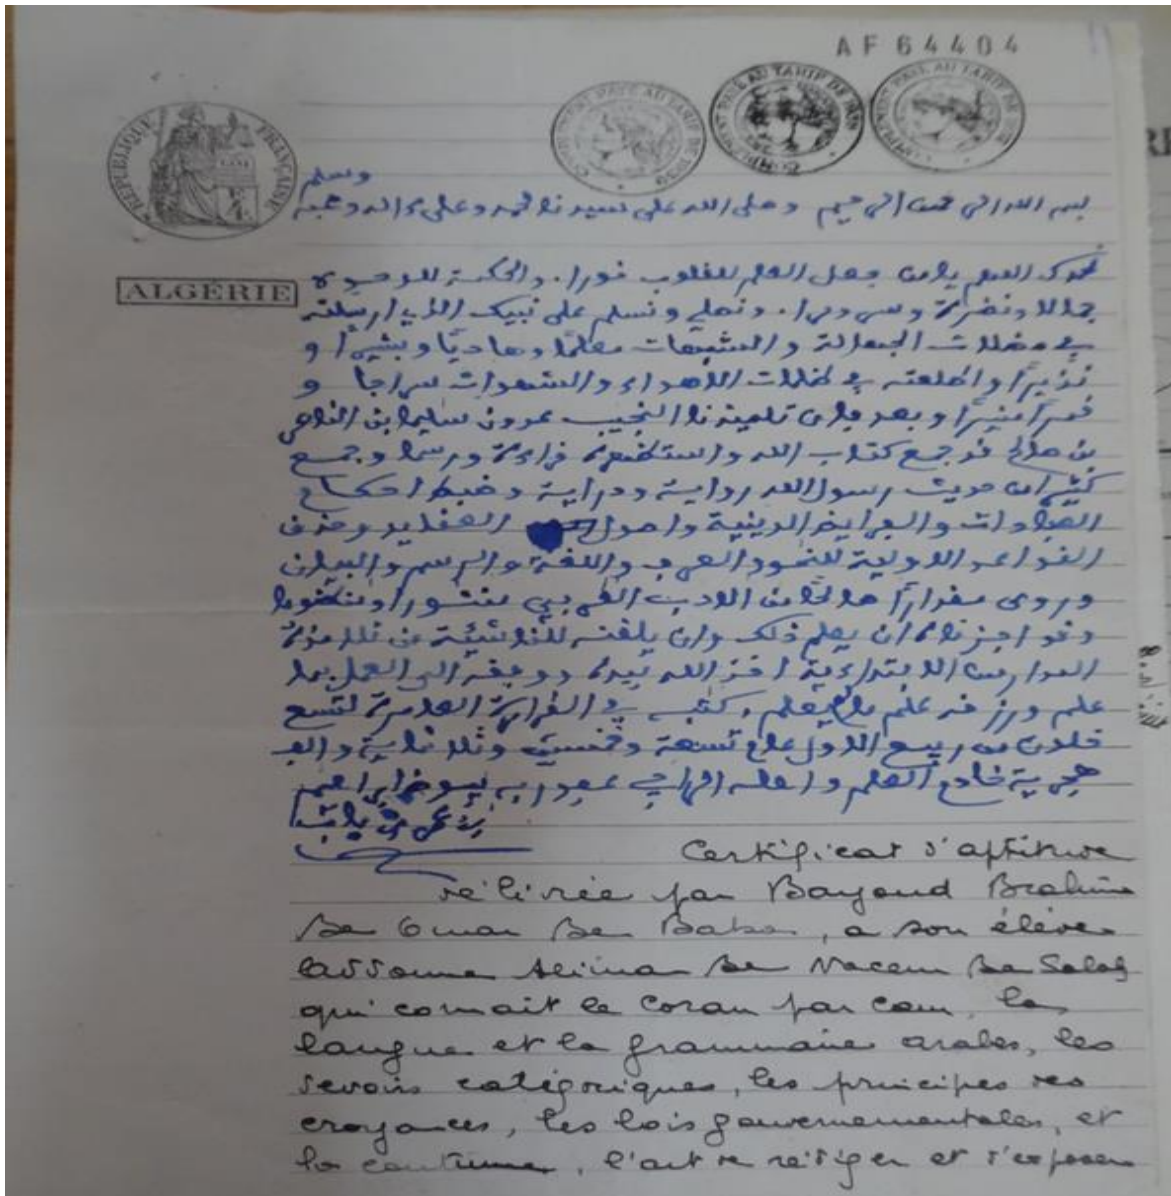 AF 64404
COMPLEMENT PAYE AU TARIF DE
COMPLEMENT PAYE AU TARIF DE
COMPLEMENT PAYE AU TARIF DE
REPUBLIQUE FRANÇAISE
ALGÉRIE
وسلم
بسم الله الرحمن الرحيم وصلى الله على سيدنا محمد وعلى آله وصحبه
نحمدك اللهم يا من جعل العلم للقلوب نورا. والحكمة للوجوه
جمالا ونضرة وسرورا. ونصلي ونسلم على نبيك الذي ارسلته
في مضلات الجهالة والشبهات معلمًا وهاديًا وبشيرًا و
نذيرًا واطلعته في ظلمات الأهواء والشهوات سراجا و
قمرًا منيرًا وبعد فإن تلميذنا النجيب سليمان بن الناصر
بن صالح قد جمع كتاب الله واستظهره قراءة ورسما وجمع
كثيرا من حديث رسول الله رواية ودراية وضبط احكام
العبادات والفرايض الدينية واصول العقايد وحذق
القواعد الاولية للنحو والصرف واللغة والرسم والبيان
وروى مقدارًا صالحًا من الادب العربي منثورا ومنظوما
وقد اجزناه ان يعلم ذلك وان يلقنه للناشئة من تلامذة
المدارس الابتداءية اخذ الله بيده ووفقه الى العمل بما
علم ورزقه علم ما لم يعلم. كتب في القرارة العامرة لتسع
خلون من ربيع الاول عام تسعة وخمسين وثلاثماية والف
هجرية خادم العلم واهله الراجي عفو ربه بيوض ابراهيم
بن عمر بن بابة
Certificat d'aptitude
délivrée par Bayoud Brahim
Ben Omar Ben Baba, a son élève
Sliman Ben Nacem Ben Salah
qui connait le Coran par cœur, la
langue et la grammaire arabes, les
devoirs catégoriques, les principes des
croyances, les lois gouvernementales, et
la coutume, l'art de rédiger et d'exposer